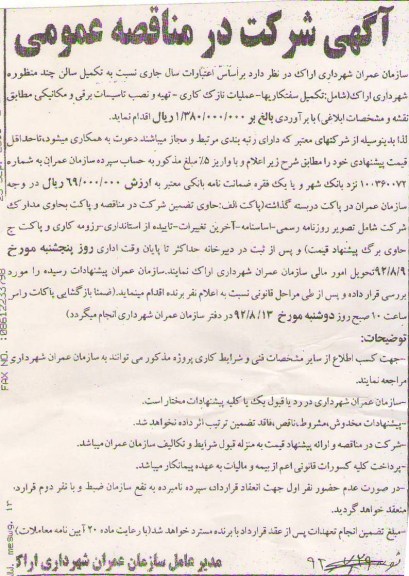 آگهی شرکت در مناقصه عمومی
سازمان عمران شهرداری اراک در نظر دارد براساس اعتبارات سال جاری نسبت به تکمیل سالن چند منظوره
شهرداری اراک(شامل:تکمیل سفتکاریها-عملیات نازک کاری - تهیه و نصب تاسیسات برقی و مکانیکی مطابق
نقشه و مشخصات ابلاغی) با برآوردی بالغ بر ۱/۳۸۰/۰۰۰/۰۰۰ ریال اقدام نماید.
لذا بدینوسیله از شرکتهای معتبر که دارای رتبه بندی مرتبط و مجاز میباشند دعوت به همکاری میشود،تاحداقل
قیمت پیشنهادی خود را مطابق شرح زیر اعلام و با واریز ۵٪ مبلغ مذکور به حساب سپرده سازمان عمران به شماره
۱۰۰۳۶۰۰۷۲ نزد بانک شهر و یا یک فقره ضمانت نامه بانکی معتبر به ارزش ۶۹/۰۰۰/۰۰۰ ریال در وجه
سازمان عمران در پاکت دربسته گذاشته(پاکت الف:حاوی تضمین شرکت در مناقصه و پاکت ب:حاوی مدارک
شرکت شامل تصویر روزنامه رسمی-اساسنامه-آخرین تغییرات-تاییده از استانداری-رزومه کاری و پاکت ج
حاوی برگ پیشنهاد قیمت) و پس از ثبت در دبیرخانه حداکثر تا پایان وقت اداری روز پنجشنبه مورخ
۹۲/۸/۹تحویل امور مالی سازمان عمران شهرداری اراک نمایند.سازمان عمران پیشنهادات رسیده را مورد
بررسی قرار داده و پس از طی مراحل قانونی نسبت به اعلام نفر برنده اقدام مینماید.(ضمنا بازگشایی پاکات راس
ساعت ۱۰ صبح روز دوشنبه مورخ ۹۲/۸/۱۳ در دفتر سازمان عمران شهرداری انجام میگردد)
توضیحات:
-جهت کسب اطلاع از سایر مشخصات فنی و شرایط کاری پروژه مذکور می توانند به سازمان عمران شهرداری
مراجعه نمایند.
-سازمان عمران شهرداری در رد یا قبول یک یا کلیه پیشنهادات مختار است.
-پیشنهادات مخدوش،مشروط،ناقص،فاقد تضمین ترتیب اثر داده نخواهد شد.
-شرکت در مناقصه و ارائه پیشنهاد قیمت به منزله قبول شرایط و تکالیف سازمان عمران میباشد.
-پرداخت کلیه کسورات قانونی اعم از بیمه و مالیات به عهده پیمانکار میباشد.
-در صورت عدم حضور نفر اول جهت انعقاد قرارداد، سپرده نامبرده به نفع سازمان ضبط و با نفر دوم قرارداد
منعقد خواهد گردید.
-مبلغ تضمین انجام تعهدات پس از عقد قرارداد با برنده مسترد خواهد شد(با رعایت ماده ۲۰ آیین نامه معاملات)
مدیر عامل سازمان عمران شهرداری اراک
FAX NO. :08612233798